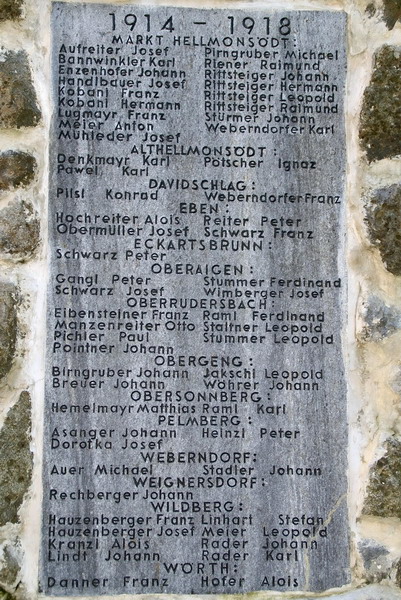 1914 - 1918
MARKT HELLMONSÖDT:
Aufreiter Josef Pirngruber Michael
Bannwinkler Karl Riener Raimund
Enzenhofer Johann Rittsteiger Johann
Handlbauer Josef Rittsteiger Hermann
Kobani Franz Rittsteiger Leopold
Kobani Hermann Rittsteiger Raimund
Lugmayr Franz Stürmer Johann
Meier Anton Weberndorfer Karl
Mühleder Josef
ALTHELLMONSÖDT:
Denkmayr Karl Pötscher Ignaz
Pawel Karl
DAVIDSCHLAG:
Pilsl Konrad Weberndorfer Franz
EBEN:
Hochreiter Alois Reiter Peter
Obermüller Josef Schwarz Franz
ECKARTSBRUNN:
Schwarz Peter
OBERAIGEN:
Gangl Peter Stummer Ferdinand
Schwarz Josef Wimberger Josef
OBERRUDERSBACH:
Eibensteiner Franz Raml Ferdinand
Manzenreiter Otto Staltner Leopold
Pichler Paul Stummer Leopold
Pointner Johann
OBERGENG:
Birngruber Johann Jakschl Leopold
Breuer Johann Wöhrer Johann
OBERSONNBERG:
Hemelmayr Matthias Raml Karl
PELMBERG:
Asanger Johann Heinzl Peter
Dorotka Josef
WEBERNDORF:
Auer Michael Stadler Johann
WEIGNERSDORF:
Rechberger Johann
WILDBERG:
Hauzenberger Franz Linhart Stefan
Hauzenberger Josef Meier Leopold
Kranzl Alois Rader Johann
Lindt Johann Rader Karl
WÖRTH:
Danner Franz Hofer Alois